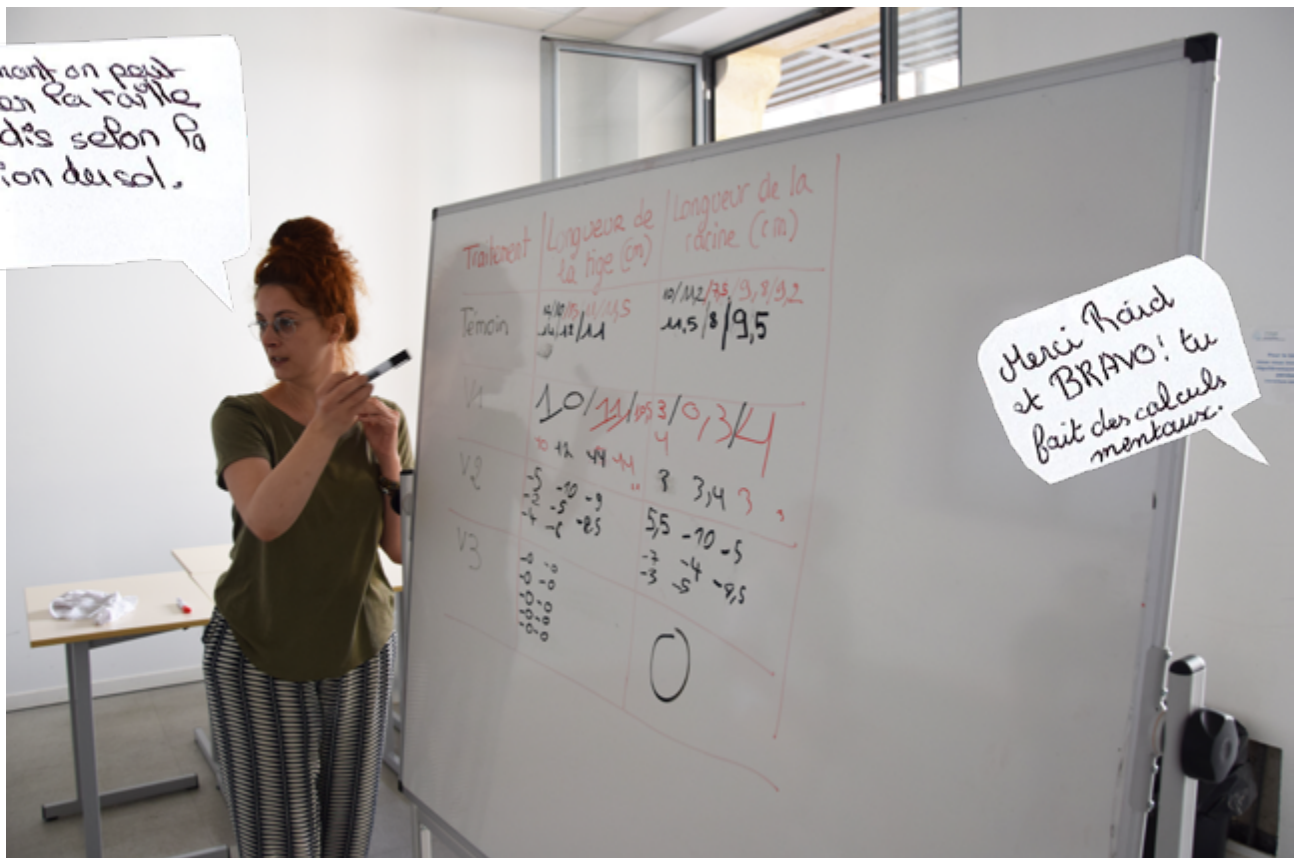 on peut
la taille
dis selon la
ion du sol.
Traitement
Longueur de
la tige (cm)
Longueur de la
racine (cm)
Témoin
11,5
12/11
10/11,2/7,5/9,8/9,2
11,5/8/9,5
V1
10/11/10,5
3/0,3/4
4
10 12 11
3 3,4 3
V2
-5 -10 -9
-2 -5
-4 -6 -8,5
5,5 -10 -5
-7 -4
-3 -5 -8,5
V3
-0 -0
-0 -0
-0 -0
-0 -0
-0 -0
0
Merci Raid
et BRAVO! tu
fait des calculs
mentaux.